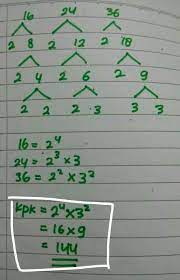 16 24 36
2 8 2 12 2 18
2 4 2 6 2 9
2 2 2 3 3 3
16 = 2⁴
24 = 2³ × 3
36 = 2² × 3²
KPK = 2⁴ × 3²
= 16 × 9
= 144